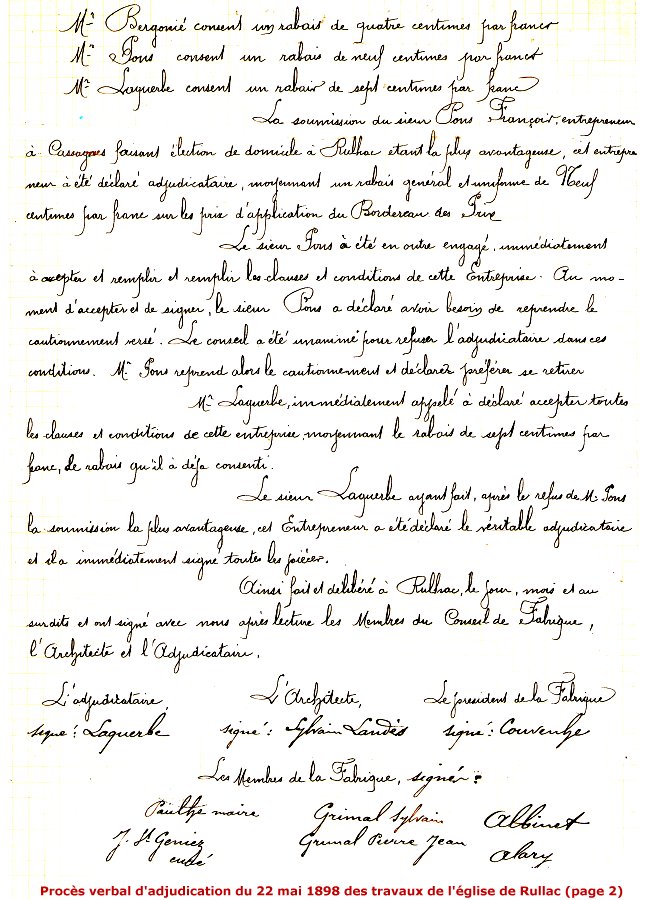 Mr Bergonié consent un rabais de quatre centimes par francs
Mr Pons consent un rabais de neuf centimes par francs
Mr Laquerbe consent un rabais de sept centimes par franc
La soumission du sieur Pons François, entrepreneur
à Cassagnes faisant élection de domicile à Rulhac etant la plus avantageuse, cet entrepre
neur à été déclaré adjudicataire, moyennant un rabais général et uniforme de Neuf
centimes par franc sur les prix d'application du Bordereau des Prix
Le sieur Pons à été en outre engagé, immédiatement
à accepter et remplir et remplir les clauses et conditions de cette Entreprise. Au mo-
ment d'accepter et de signer, le sieur Pons a déclaré avoir besoin de reprendre le
cautionnement versé. Le conseil a été unanime pour refuser l'adjudicataire dans ces
conditions. Mr Pons reprend alors le cautionnement et déclare préférer se retirer
Mr Laquerbe, immédiatement appelé à déclaré accepter toutes
les clauses et conditions de cette entreprise moyennant le rabais de sept centimes par
franc, de rabais qu'il à déja consenti.
Le sieur Laquerbe ayant fait, après le refus de Mr Pons
la soumission la plus avantageuse, cet Entrepreneur a été déclaré le véritable adjudicataire
et il a immédiatement signé toutes les pièces.
Ainsi fait et delibéré à Rulhac, le jour, mois et au
surdits et ont signé avec nous après lecture les Membres du Conseil de Fabrique,
l'Architecte et l'Adjudicataire.
L'adjudicataire L'Architecte, Le president de la Fabrique
signé : Laquerbe signé : Sylvain Landès signé : Couvenhe
Les Membres de la Fabrique, signés :
Paulhe maire Grimal Sylvain Albinet
J. St Geniez Grimal Pierre Jean Alary
curé
Procès verbal d'adjudication du 22 mai 1898 des travaux de l'église de Rullac (page 2)